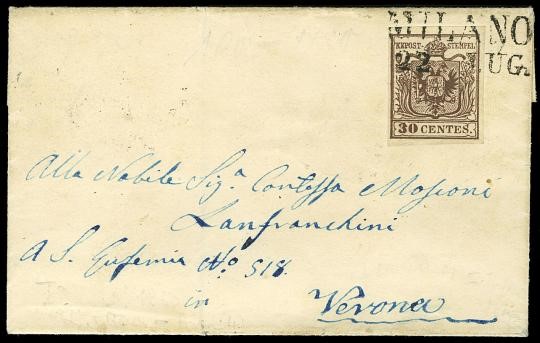 MILANO
22 LUG.
KKPOST-STEMPEL
30 CENTES.
Alla Nobile Sig.a Contessa Mosconi
Lanfranchini
A S. Eufemia No. 518.
in
Verona